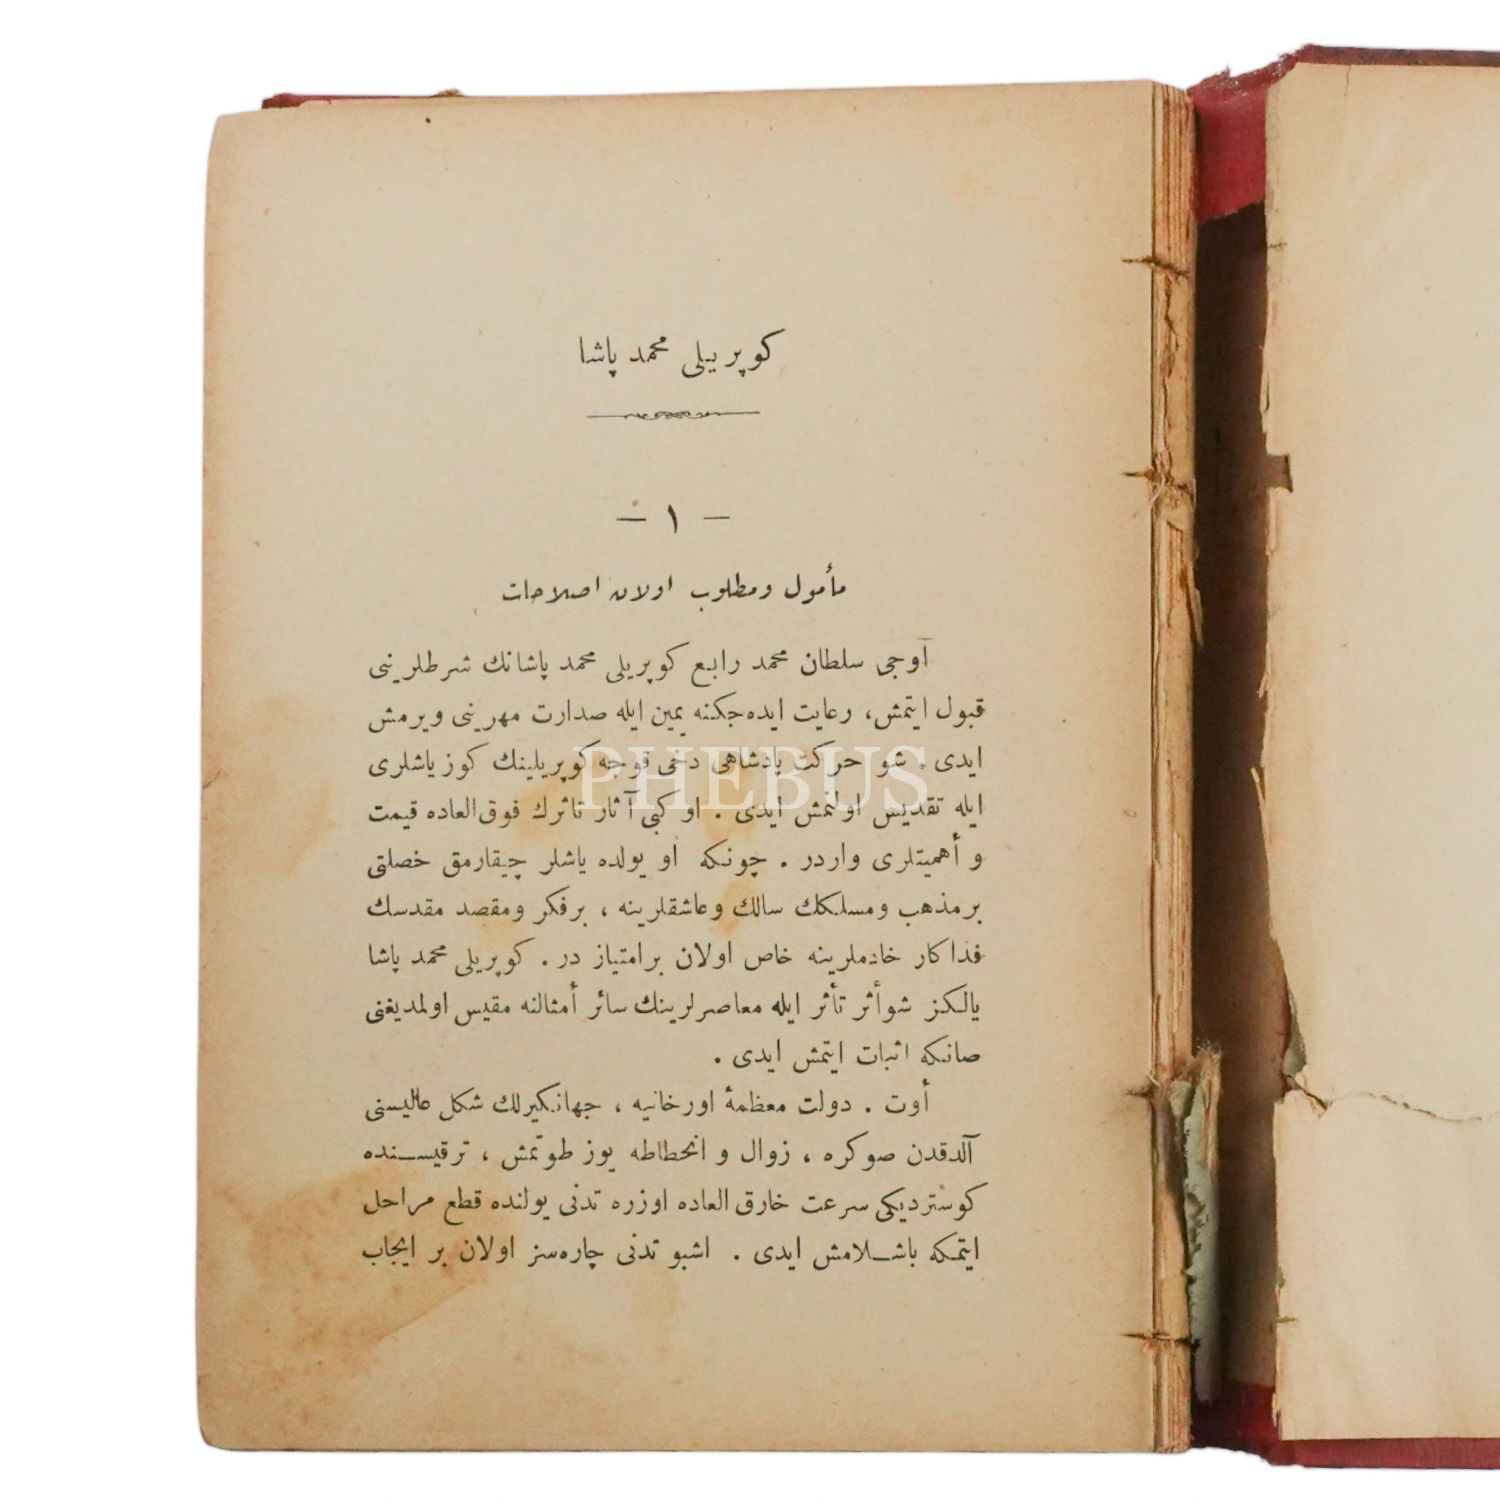 كوپريلى محمد پاشا
— ١ —
مأمول ومطلوب اولان اصلاحات
آوجى سلطان محمد رابع كوپريلى محمد پاشانك شرطلرينى
قبول ايتمش، رعايت ايده‌جكنه يمين ايله صدارت مهرينى ويرمش
ايدى . شو حركت پادشاهى دخى قوجه كوپريلينك كوز ياشلرى
ايله تقديس اولنمش ايدى . او كبى آثار تاثرك فوق‌العاده قيمت
و أهميتلرى واردر . چونكه او يولده ياشلر چيقارمق خصلتى
برمذهب ومسلكك سالك وعاشقلرينه ، برفكر ومقصد مقدسك
فداكار خادملرينه خاص اولان برامتياز در . كوپريلى محمد پاشا
يالكز شوأثر تأثر ايله معاصرلرينك سائر أمثالنه مقيس اولمديغنى
صانكه اثبات ايتمش ايدى .
أوت . دولت معظمهٔ اورخانيه ، جهانكيرلك شكل عاليسنى
آلدقدن صوكره ، زوال و انحطاطه يوز طوتمش ، ترقيسنده
كوستردیكى سرعت خارق العاده اوزره تدنى يولنده قطع مراحل
ايتمكه باشلامش ايدى . اشبو تدنى چاره‌سز اولان بر ايجاب
PHEBUS